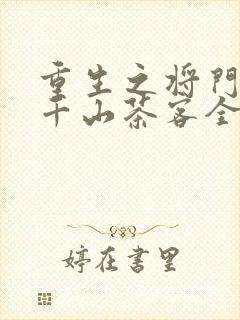 重生之将门
千山茶客全
婷在书里